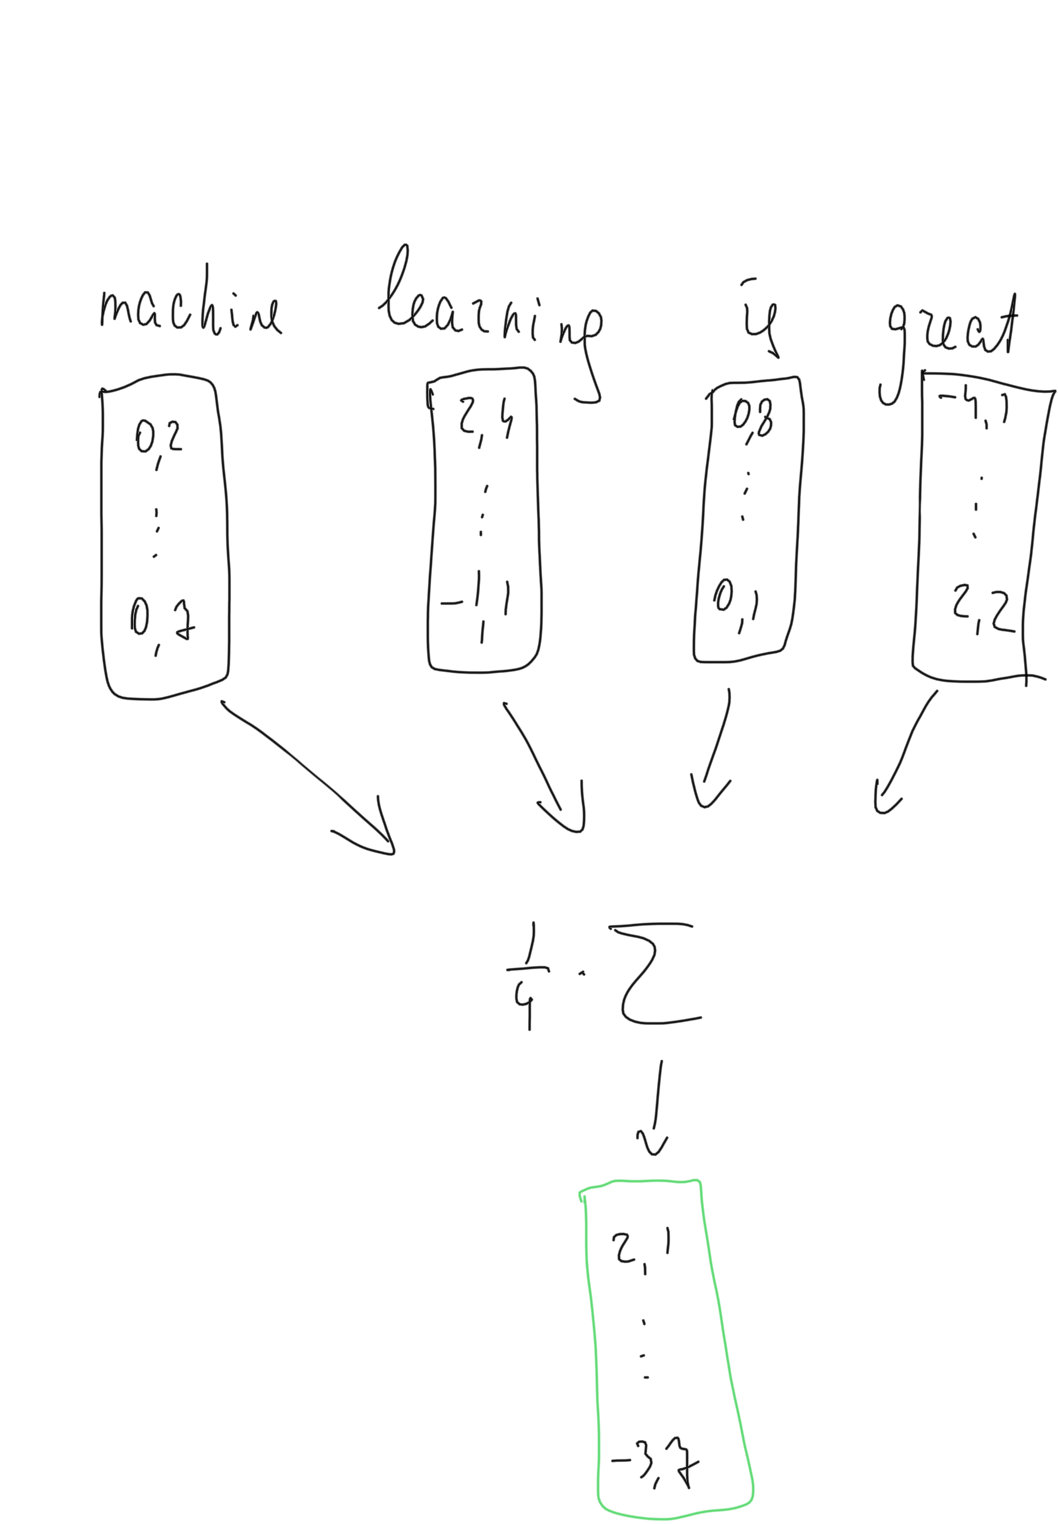 machine learning is great
0,2 2,4 0,8 -4,1
⋮ ⋮ ⋮ ⋮
0,7 -1,1 0,1 2,2
1/4 · Σ
2,1
⋮
-3,7